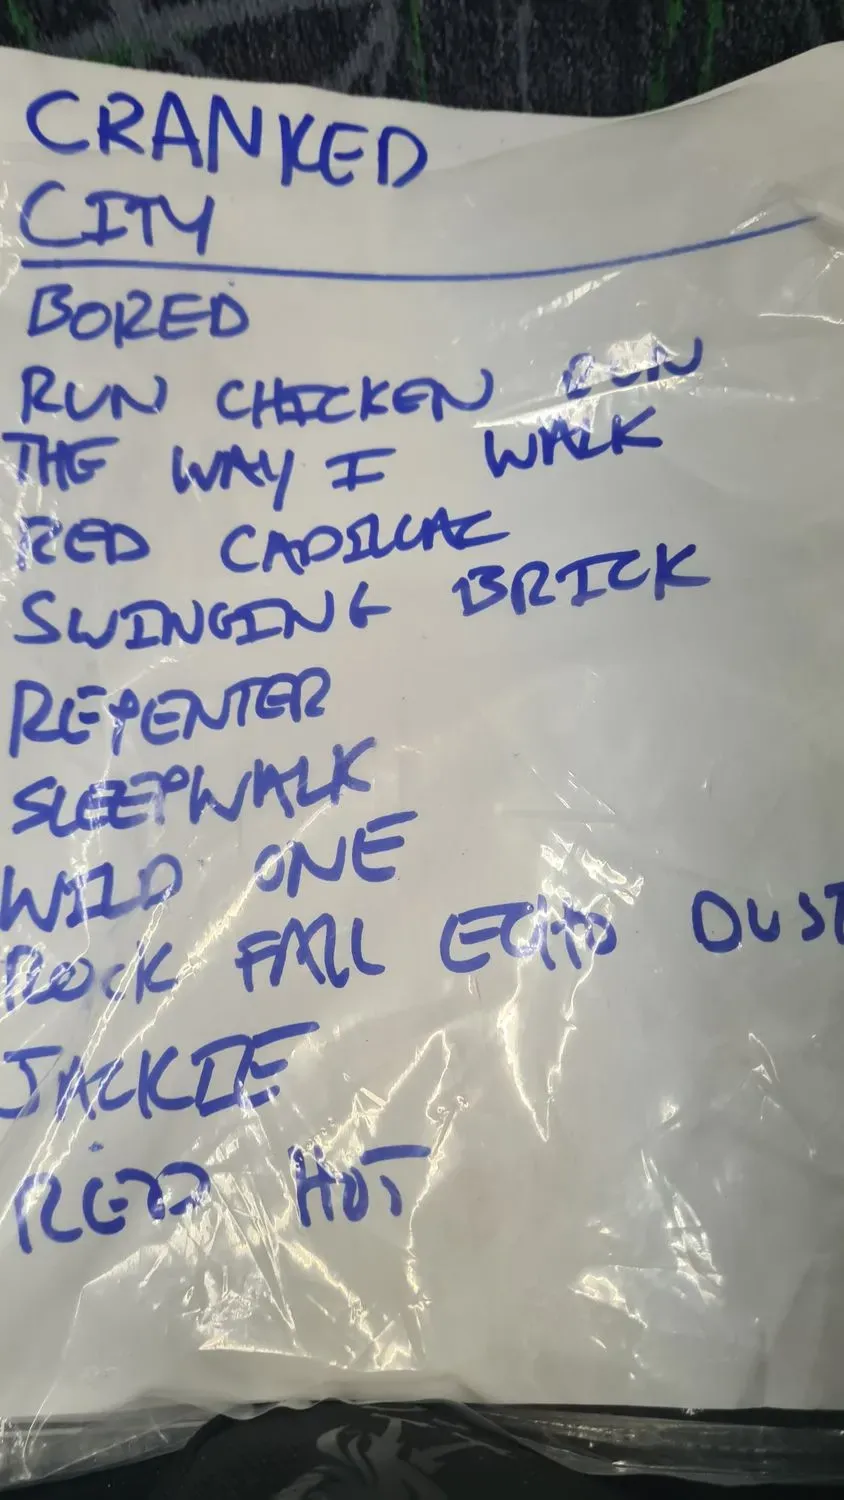 CRANKED
CITY
BORED
RUN CHICKEN RUN
THE WAY I WALK
RED CADILLAC
SWINGING BRICK
REPENTER
SLEEPWALK
WILD ONE
ROCK FALL ECHO DUST
JACKIE
RED HOT